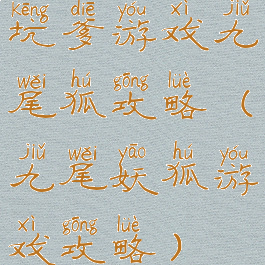 kēng diē yóu xì jiǔ
坑爹游戏九
wěi hú gōng lüè
尾狐攻略（
jiǔ wěi yāo hú yóu
九尾妖狐游
xì gōng lüè
戏攻略）